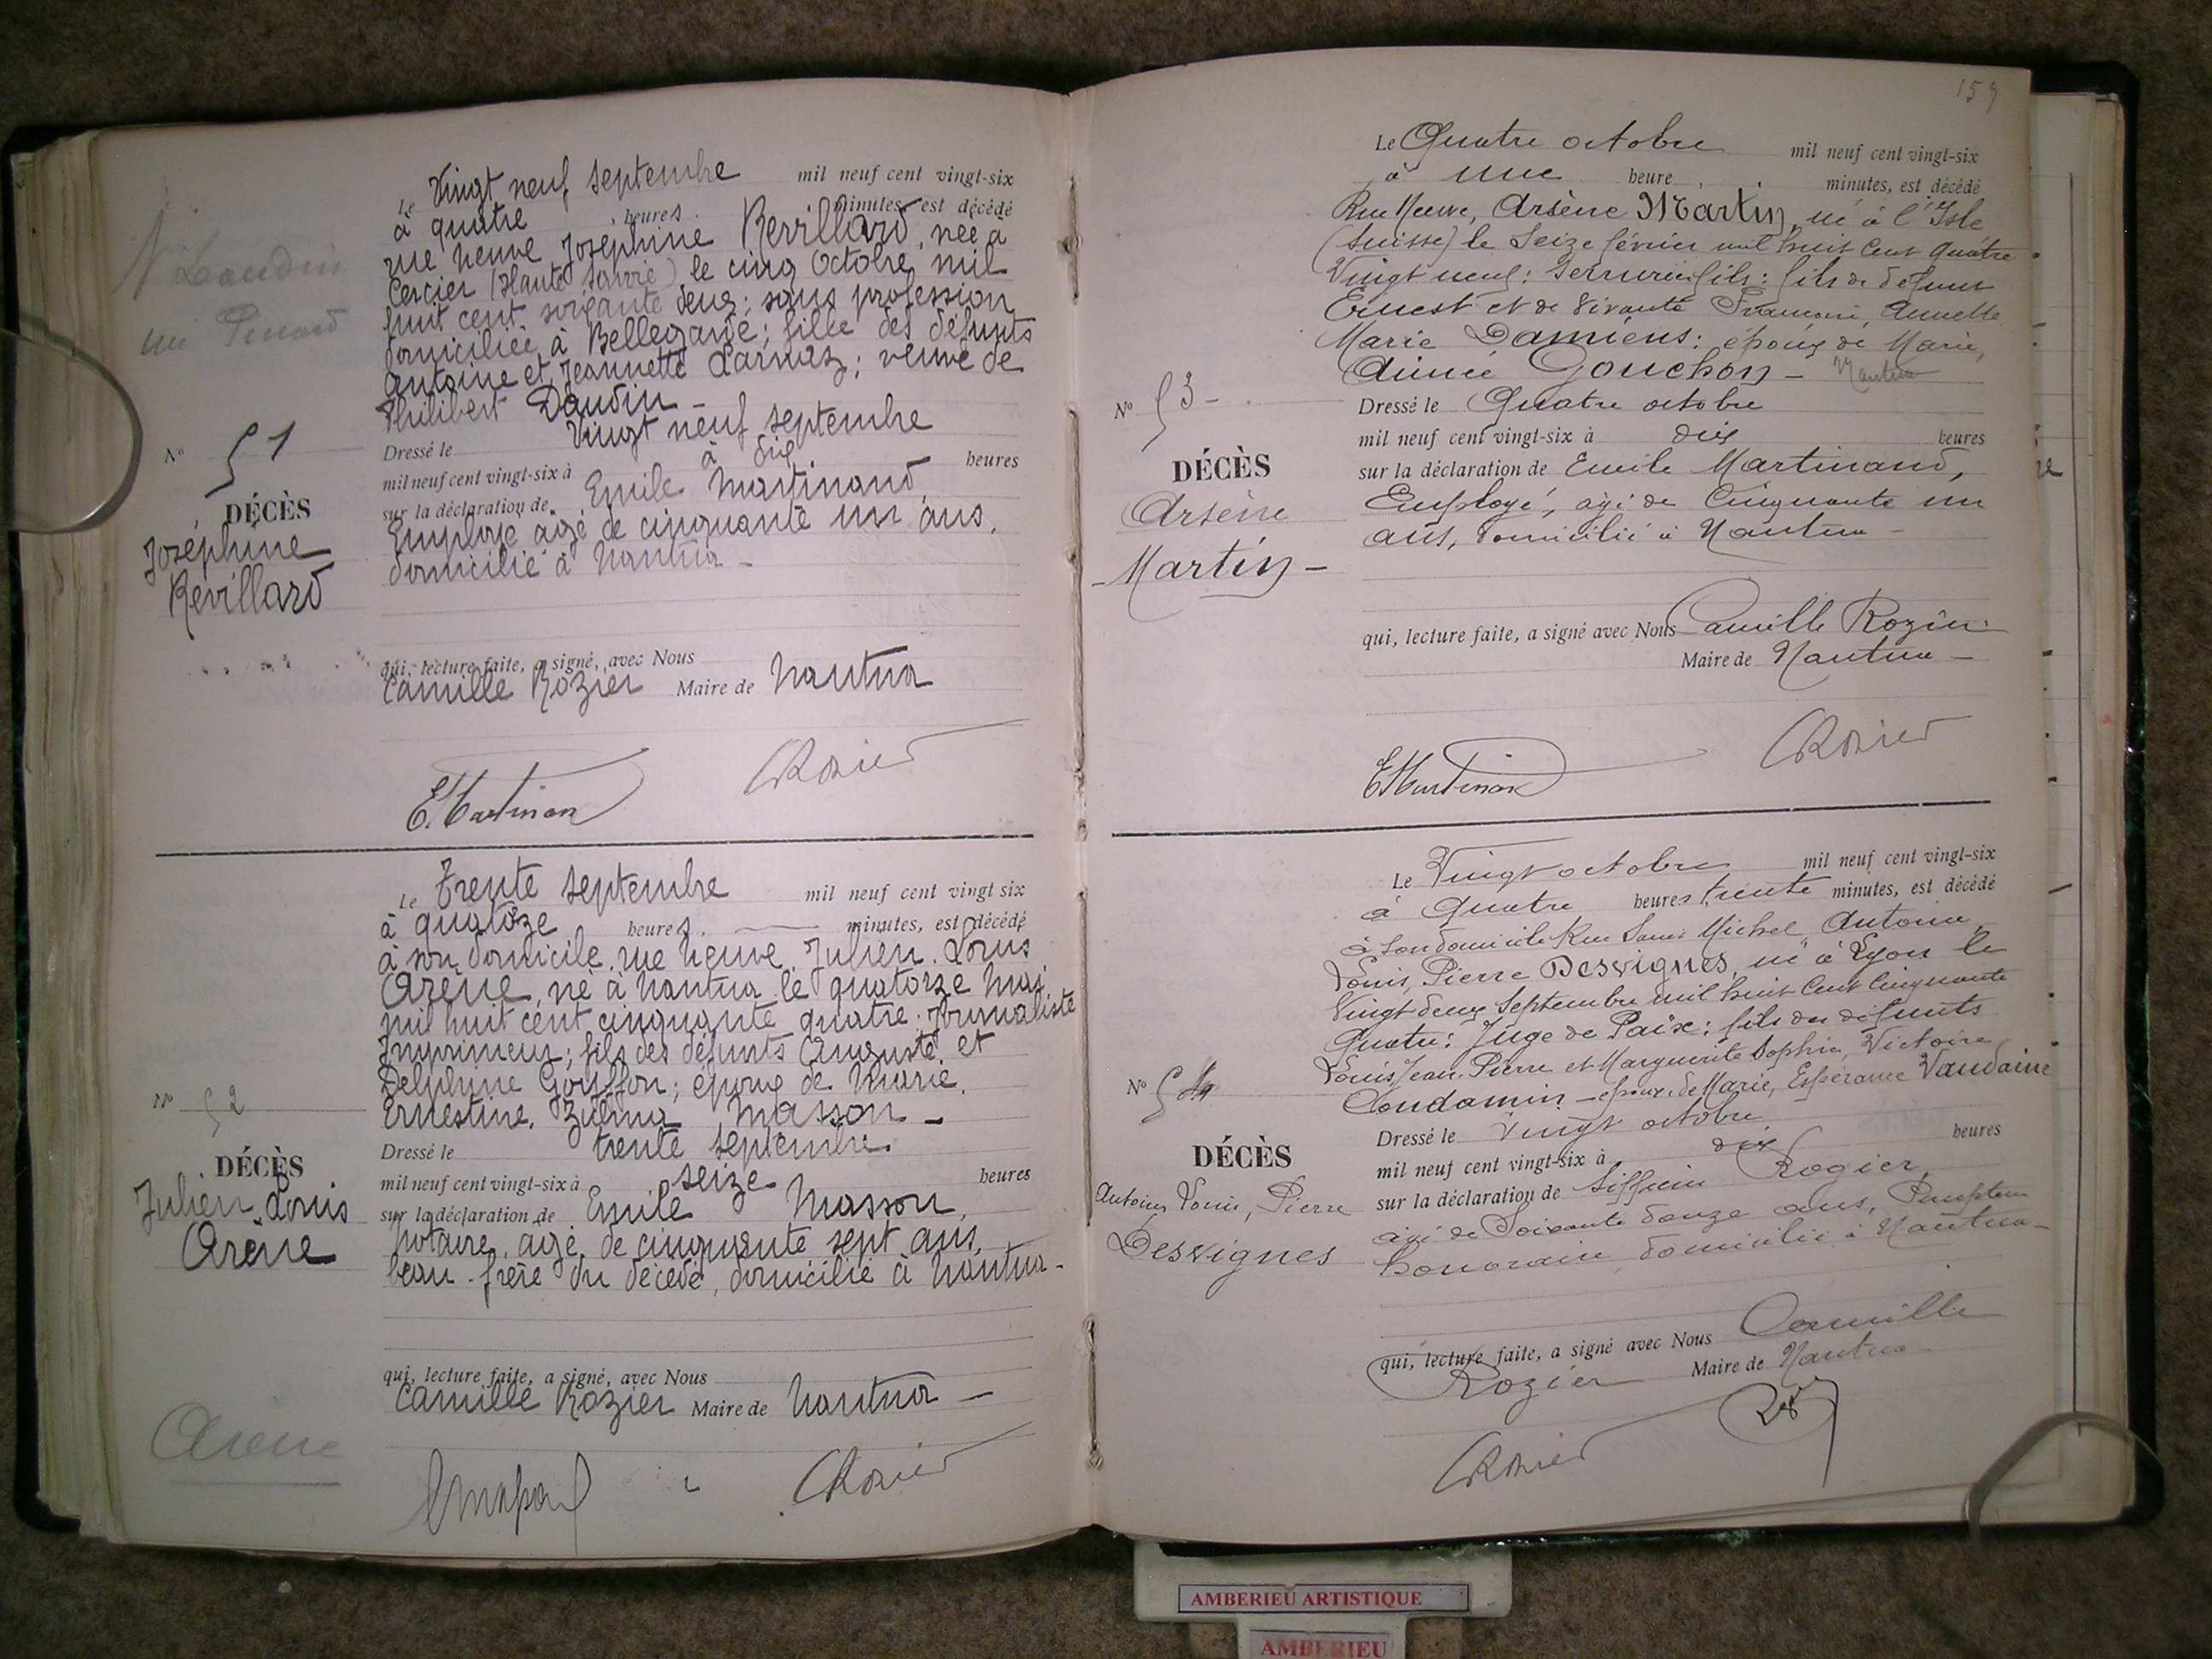 Le Vingt neuf septembre mil neuf cent vingt-six
à quatre heures minutes est décédé
rue neuve Joséphine Revillard, née à
Cercier (Haute Savoie) le cinq Octobre mil
huit cent soixante deux; sans profession
domiciliée à Bellegarde; fille des défunts
Antoine et Jeannette Larnaz; veuve de
Philibert Daudin -
Dressé le Vingt neuf septembre
mil neuf cent vingt-six à à dix heures
sur la déclaration de Emile Martinand,
Employé agé de cinquante un ans,
domicilié à Nantua -
N° 51
DÉCÈS
Joséphine
Revillard
qui, lecture faite, a signé, avec Nous
Camille Rozier Maire de Nantua
E. Martinand
CRozier
Le Trente septembre mil neuf cent vingt six
à quatorze heures, minutes, est décédé
à son domicile, rue neuve, Julien. Louis
Arène, né à Nantua le quatorze Mai
mil huit cent cinquante quatre. Journaliste
Imprimeur; fils des défunts Auguste et
Delphine Gouffon; époux de Marie.
Ernestine. Zulma Masson -
Dressé le trente septembre
mil neuf cent vingt-six à seize heures
sur la déclaration de Emile Masson,
notaire, agé de cinquante sept ans,
beau-frère du décédé, domicilié à Nantua -
N° 52
DÉCÈS
Julien. Louis
Arène
qui, lecture faite, a signé, avec Nous
Camille Rozier Maire de Nantua -
Arène
CRozier
159
Le Quatre octobre mil neuf cent vingt-six
à une heure minutes, est décédé
Rue Neuve, Arsène Martin, né à l'Isle
(Suisse) le Seize février mil huit cent quatre
Vingt neuf: fils de défunt
Ernest et de vivante Annette
Marie Damiens: époux de Marie,
Aimée Gouchon - Nantua
N° 53 -
Dressé le Quatre octobre
mil neuf cent vingt-six à dix heures
DÉCÈS
Arsène
- Martin -
sur la déclaration de Emile Martinand,
Employé, agé de Cinquante un
ans, domicilié à Nantua -
qui, lecture faite, a signé avec Nous Camille Rozier
Maire de Nantua -
EMartinand
CRozier
Le Vingt octobre mil neuf cent vingt-six
à Quatre heures trente minutes, est décédé
à son domicile Rue Michel Antoine,
Louis, Pierre Desvignes, né à Lyon le
Vingt deux Septembre mil huit Cent Cinquante
Quatre: Juge de Paix: fils des défunts
Louis Jean. Pierre et Marguerite Sophie, Victoire
Condamin - époux de Marie, Espérance Vaudaine
N° 54
Dressé le Vingt octobre
mil neuf cent vingt-six à dix heures
DÉCÈS
Antoine Louis, Pierre
Desvignes
sur la déclaration de Siffrein Rogier,
agé de Soixante douze ans, Percepteur
honoraire domicilié à Nantua -
qui, lecture faite, a signé avec Nous Camille
Rozier Maire de Nantua
CRozier
AMBERIEU ARTISTIQUE
AMBERIEU